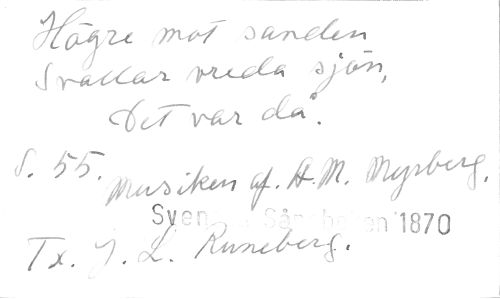 Högre mot sanden
Svallar vreda sjön,
Det var då.
S. 55.
Musiken af. A. M. Myrberg.
Sven Sångboken 1870
Tx. J. L. Runeberg.